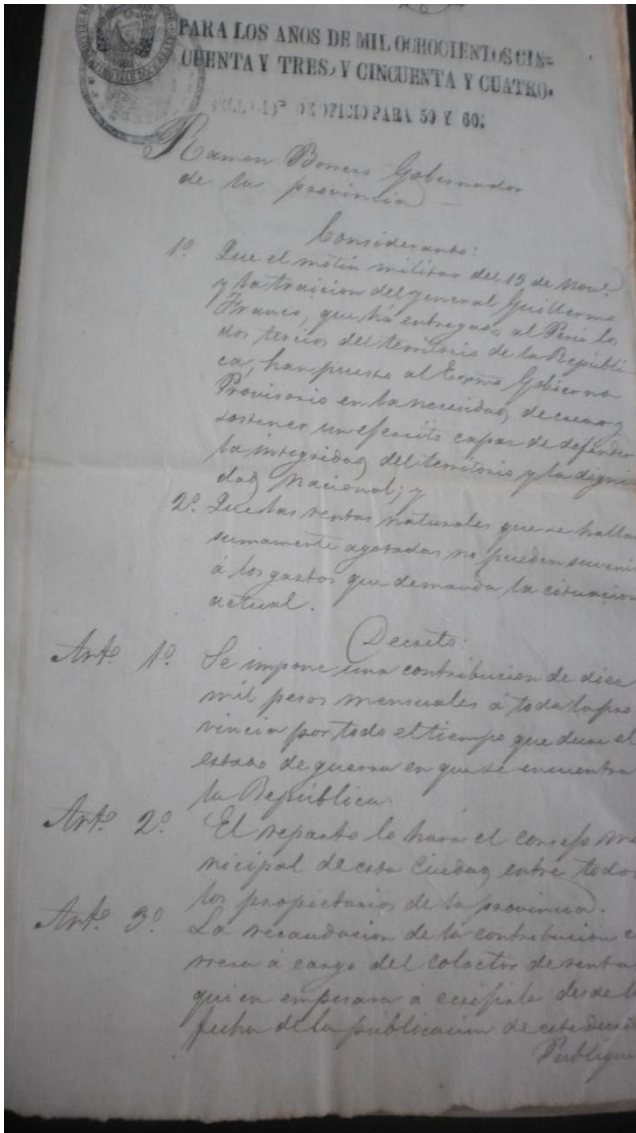 PARA LOS AÑOS DE MIL OCHOCIENTOS CIN=
CUENTA Y TRES, Y CINCUENTA Y CUATRO.
DE OFICIO PARA 59 Y 60.
Ramon Borrero Gobernador
de la provincia —
Considerando:
1º Que el motin militar del 15 de Novº
y la traicion del general Guillermo
Franco, que ha entregado al Perú los
dos tercios del territorio de la Repúbli
ca, han puesto al Exmo Gobierno
Provisorio en la necesidad, de crear y
sostener un ejercito capaz de defender
la integridad, del territorio y la digni
dad, Nacional; y
2º Que las rentas naturales que se hallan
sumamente agotadas no pueden suvenir
á los gastos que demanda la cituacion
actual.
Decreto:
Artº 1º Se impone una contribucion de dies
mil pesos mensuales á toda la pro
vincia por todo el tiempo que dure el
estado de guerra en que se encuentra
la República.
Artº 2º El reparto lo hara el consejo mu
nicipal de esta Ciudad, entre todos
los propietarios de la provincia.
Artº 3º La recaudacion de la contribucion co
rrera á cargo del colector de renta
quien empesara á ecsijirla desde la
fecha de la publicacion de este decreto
Publique